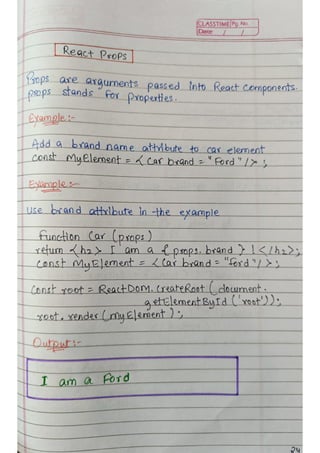 CLASSTIME Pg. No.
Date / /
React Props
Props are arguments passed into React components.
props stands for properties.
Example:-
Add a brand name attribute to car element
const MyElement = <Car brand = "Ford" />;
Example:-
Use brand attribute in the example
function Car (props)
return <h2> I am a { props. brand } ! </h2>;
Const MyElement = <Car brand = "ford" />;
Const root = ReactDOM. createRoot ( document.
getElementById ('root'));
root. render (myElement);
Output:-
I am a Ford
24